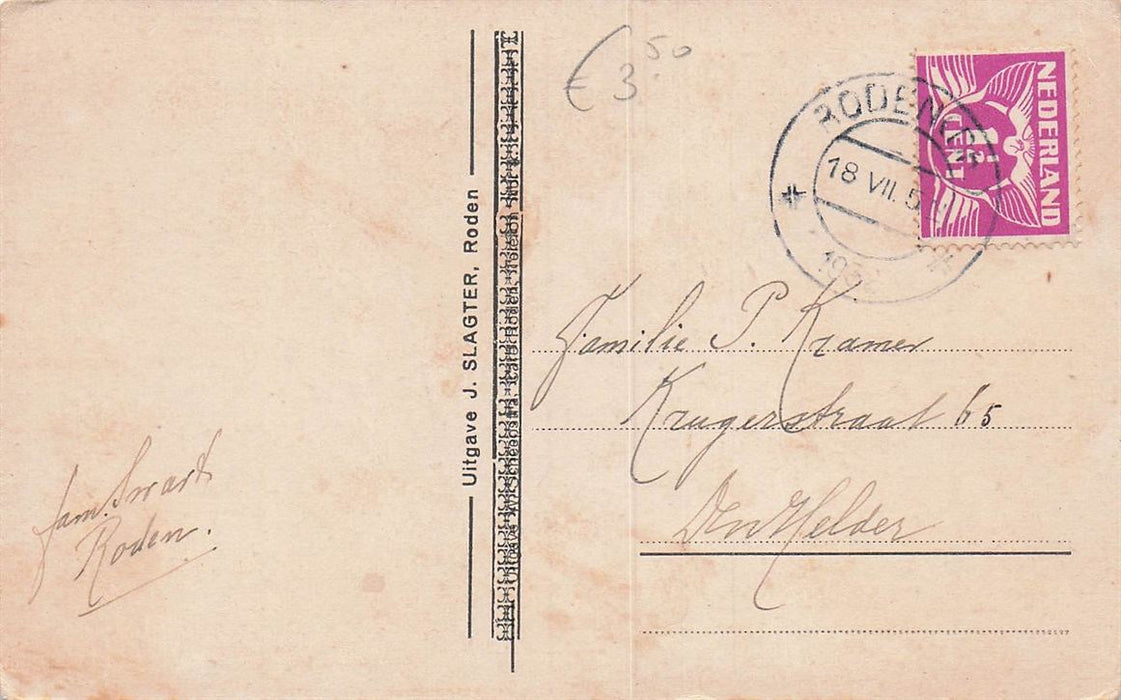 € 3.50
NEDERLAND
CENT
RODEN
18 VII. 5
Uitgave J. SLAGTER, Roden
Familie P. Kramer
Krugerstraat 65
Den Helder
fam. Swart
Roden.